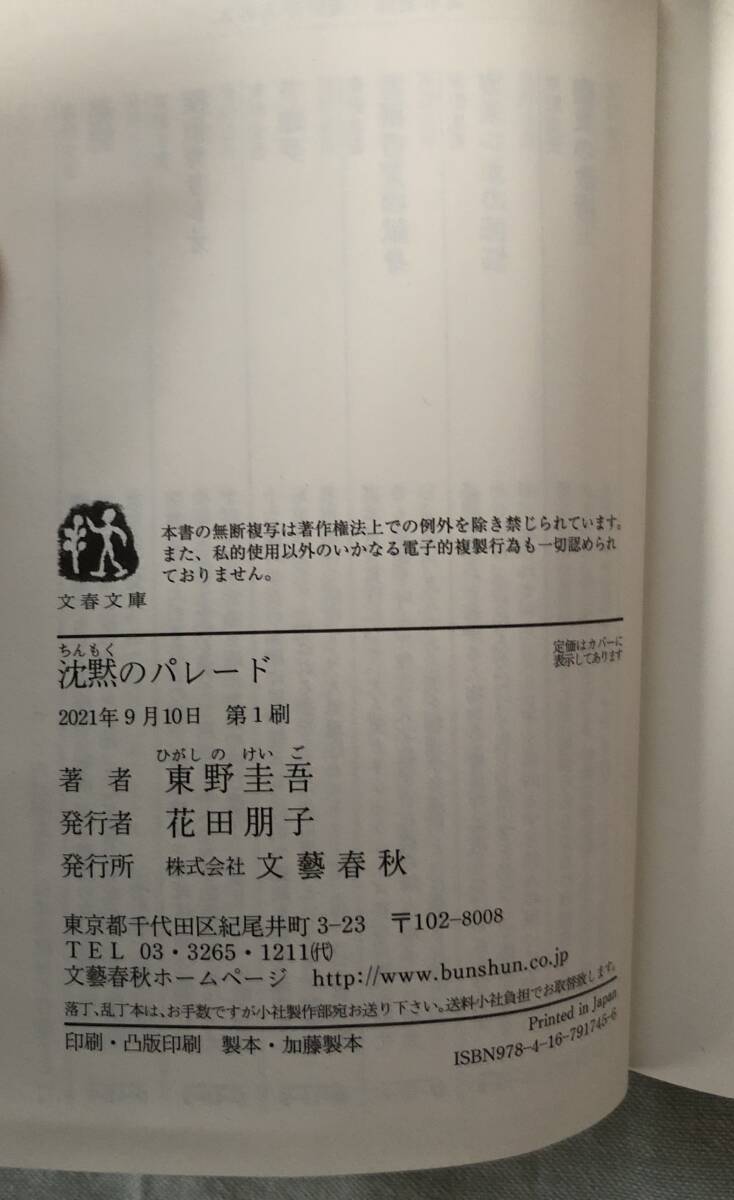 本書の無断複写は著作権法上での例外を除き禁じられています。
また、私的使用以外のいかなる電子的複製行為も一切認められ
ておりません。
文春文庫
定価はカバーに
表示してあります
ちんもく
沈黙のパレード
2021年9月10日 第1刷
ひがし の けい ご
著 者 東野圭吾
発行者 花田朋子
発行所 株式会社 文藝春秋
東京都千代田区紀尾井町 3-23 〒102-8008
TEL 03・3265・1211㈹
文藝春秋ホームページ http://www.bunshun.co.jp
落丁、乱丁本は、お手数ですが小社製作部宛お送り下さい。送料小社負担でお取替致します。
印刷・凸版印刷 製本・加藤製本
Printed in Japan
ISBN978-4-16-791745-6